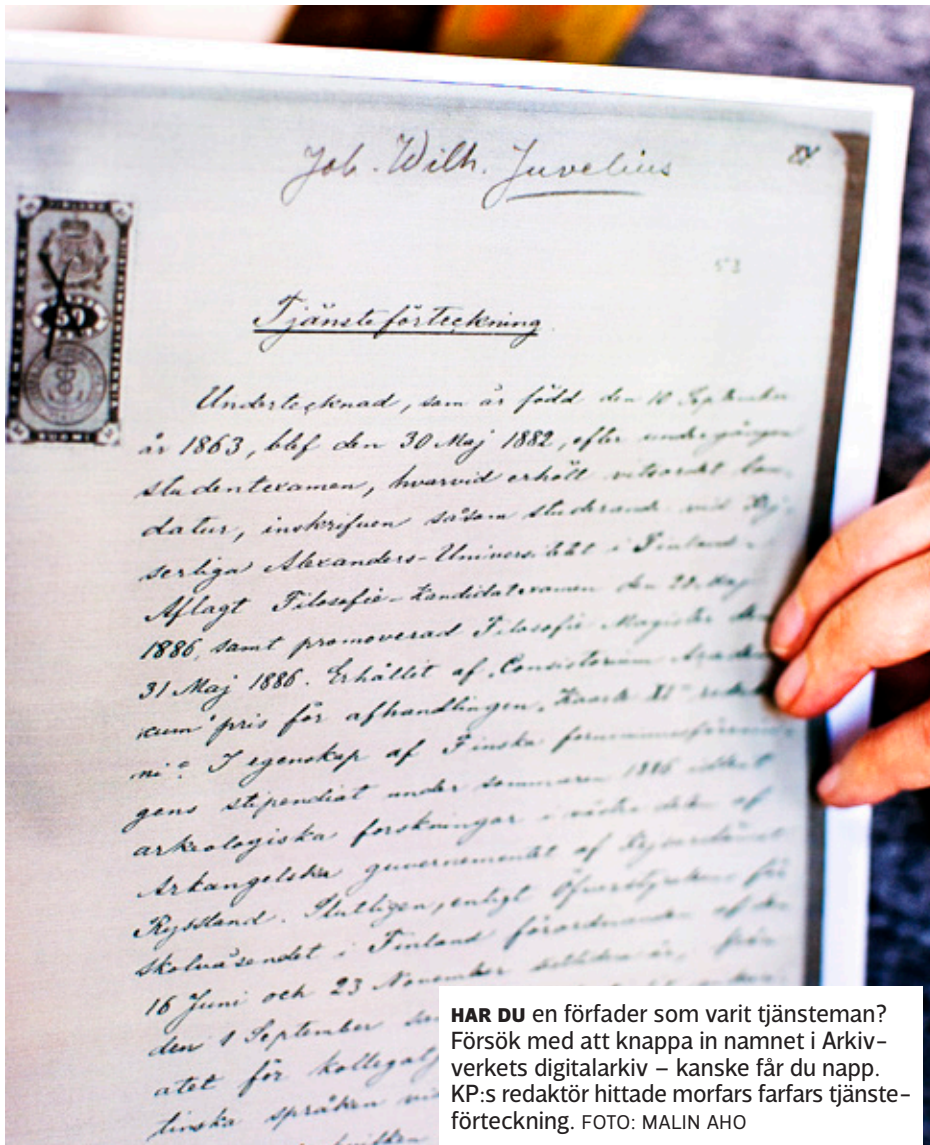 Joh. Wilh. Juvelius
53
50
Tjänsteförteckning.
Undertecknad, som är född den 10 September
år 1863, blef den 30 Maj 1882, efter undergången
studentexamen, hvarvid erhölt vitsordet lau-
datur, inskrifven såsom studerande vid Kej-
serliga Alexanders-Universitetet i Finland.
Aflagt Filosofie-Kandidatexamen den Maj
1886, samt promoverad Filosofie Magister den
31 Maj 1886. Erhållit af "Consistorium Academi-
cum" pris för afhandlingen, "Kaarle XI"
I egenskap af Finska fornminnesförenin-
gens stipendiat under sommaren 1886 idkat
arkeologiska forskningar i västra delen af
Arkangelska guvernementet af Kejsardömet
Ryssland. Slutligen, enligt Öfverstyrelsens för
skolväsendet i Finland förordnanden af den
16 Juni och 23 November sistlidna år, från
den 1 September
atet för kollega
tinska språken vid
HAR DU en förfader som varit tjänsteman?
Försök med att knappa in namnet i Arkiv-
verkets digitalarkiv – kanske får du napp.
KP:s redaktör hittade morfars farfars tjänste-
förteckning. FOTO: MALIN AHO